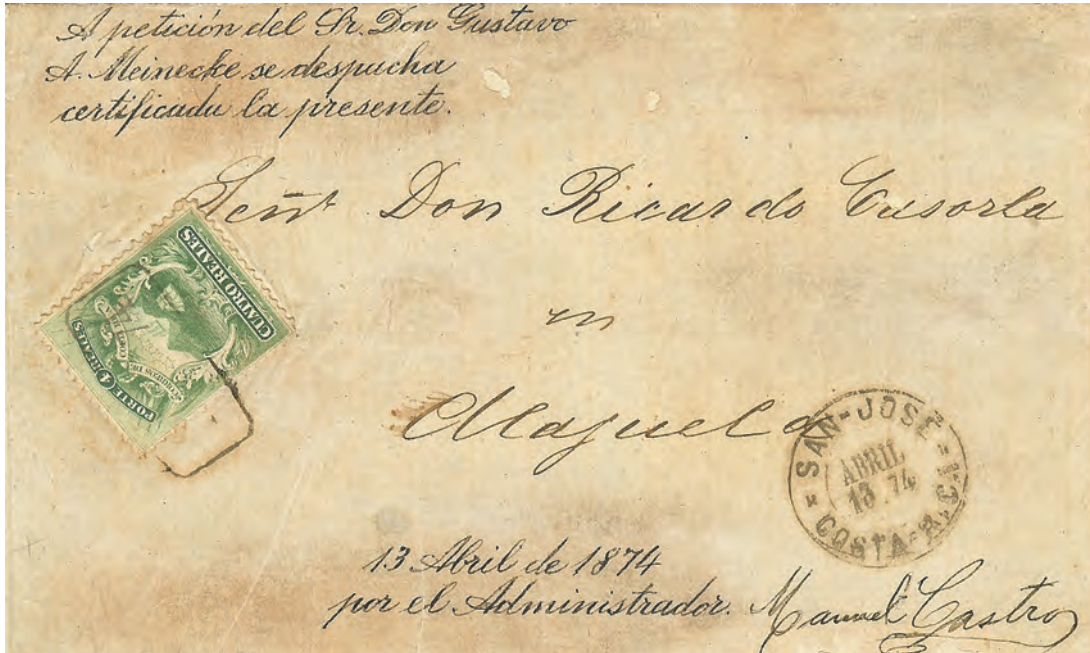 A petición del Sr. Don Gustavo
A. Meinecke se despacha
certificada la presente.
Señr Don Ricardo Casorla
en
Alajuela
CUATRO REALES
CORREOS DE COSTA RICA
PORTE 4 REALES
SAN-JOSÉ
ABRIL
13.74
COSTA-RICA
13 Abril de 1874
por el Administrador. Manuel Castro